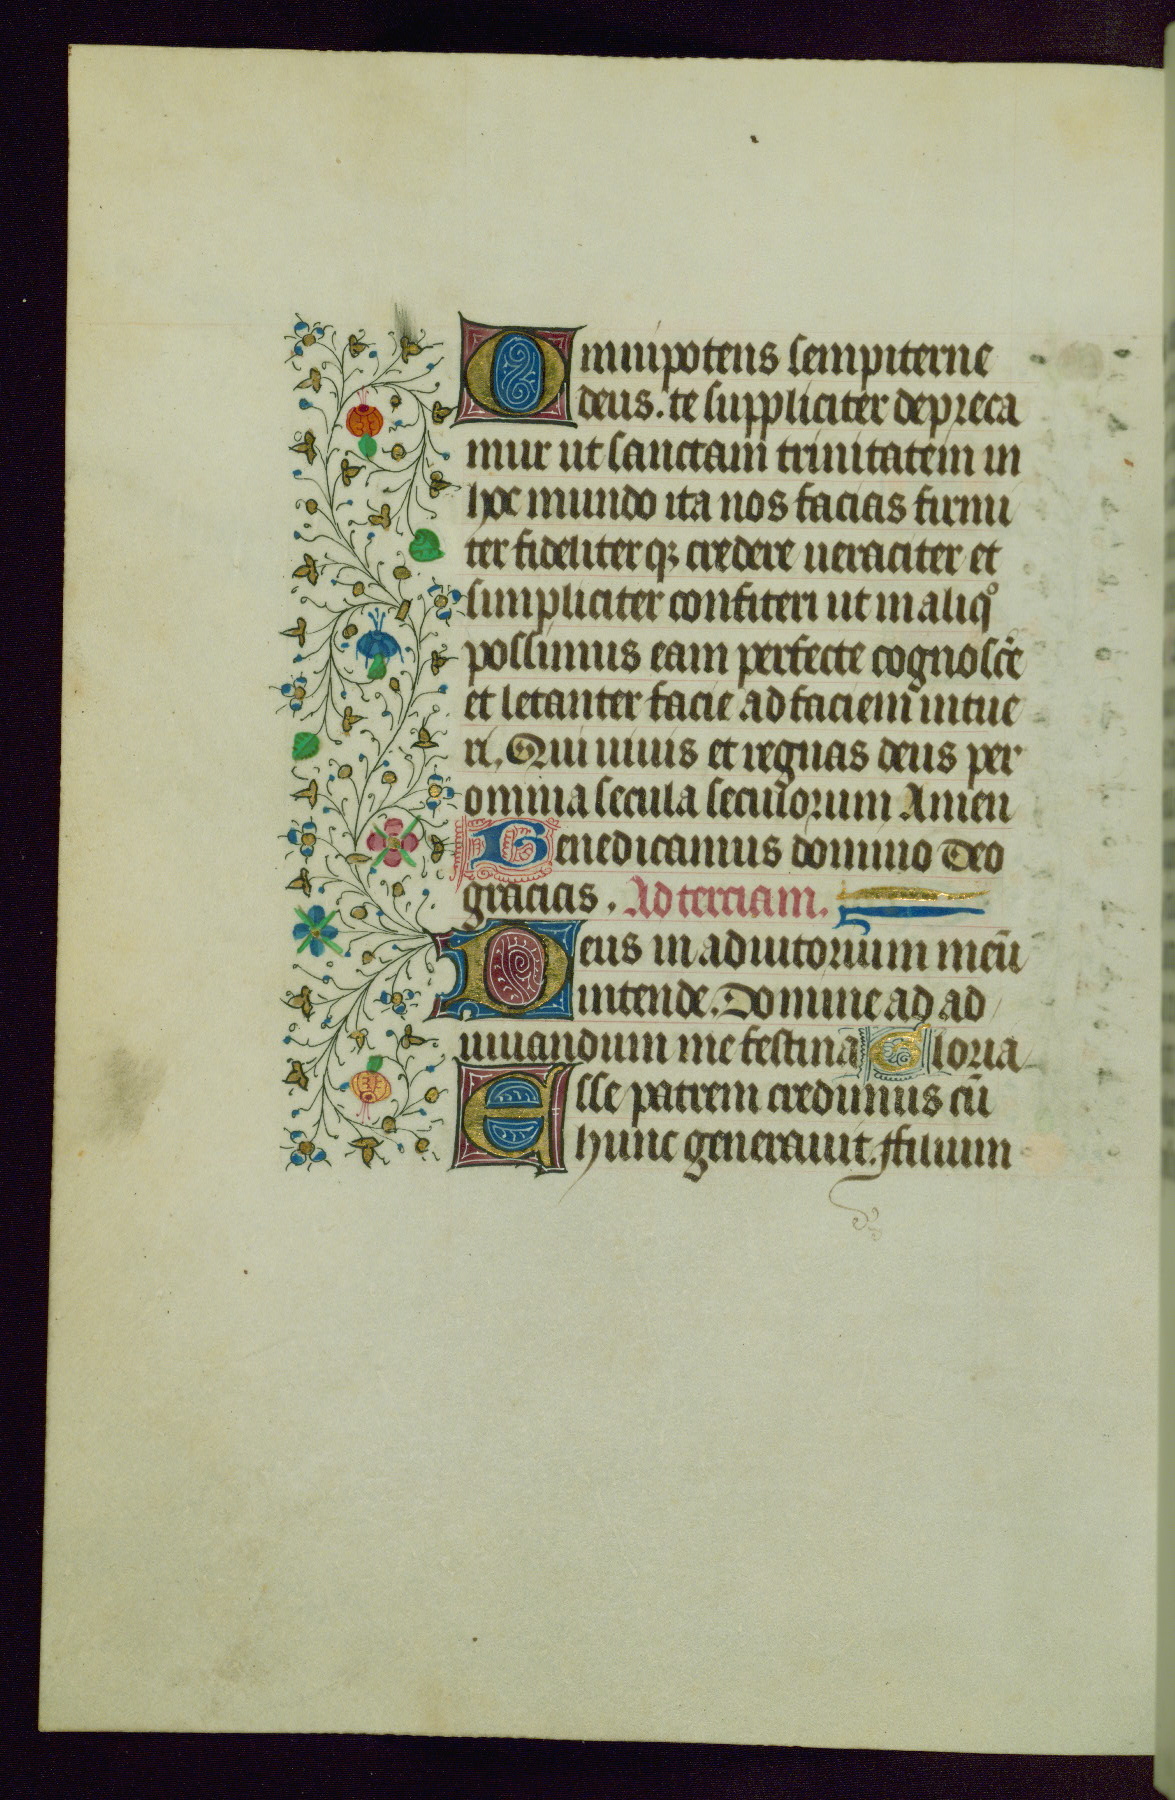 Omnipotens sempiterne
deus. te suppliciter depreca
mur ut sanctam trinitatem in
hoc mundo ita nos facias firmi
ter fideliter qꝫ credere ueraciter et
simpliciter confiteri ut in aliqͦ
possimus eam perfecte cognosc̄e
et letanter facie ad faciem intue
ri. Qui uiuis et regnas deus per
omnia secula seculorum Amen
Benedicamus domino Deo
gracias. Ad terciam.
Deus in adiutorium meū
intende. Domine ad ad
iuuandum me festina Gloria
Esse patrem credimus cū
hunc generauit. ffilium